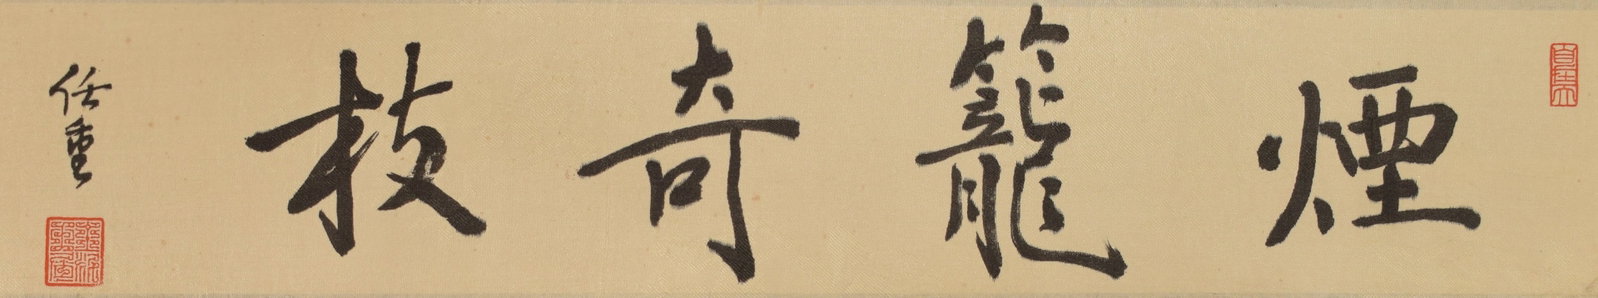 煙籠奇枝
任重